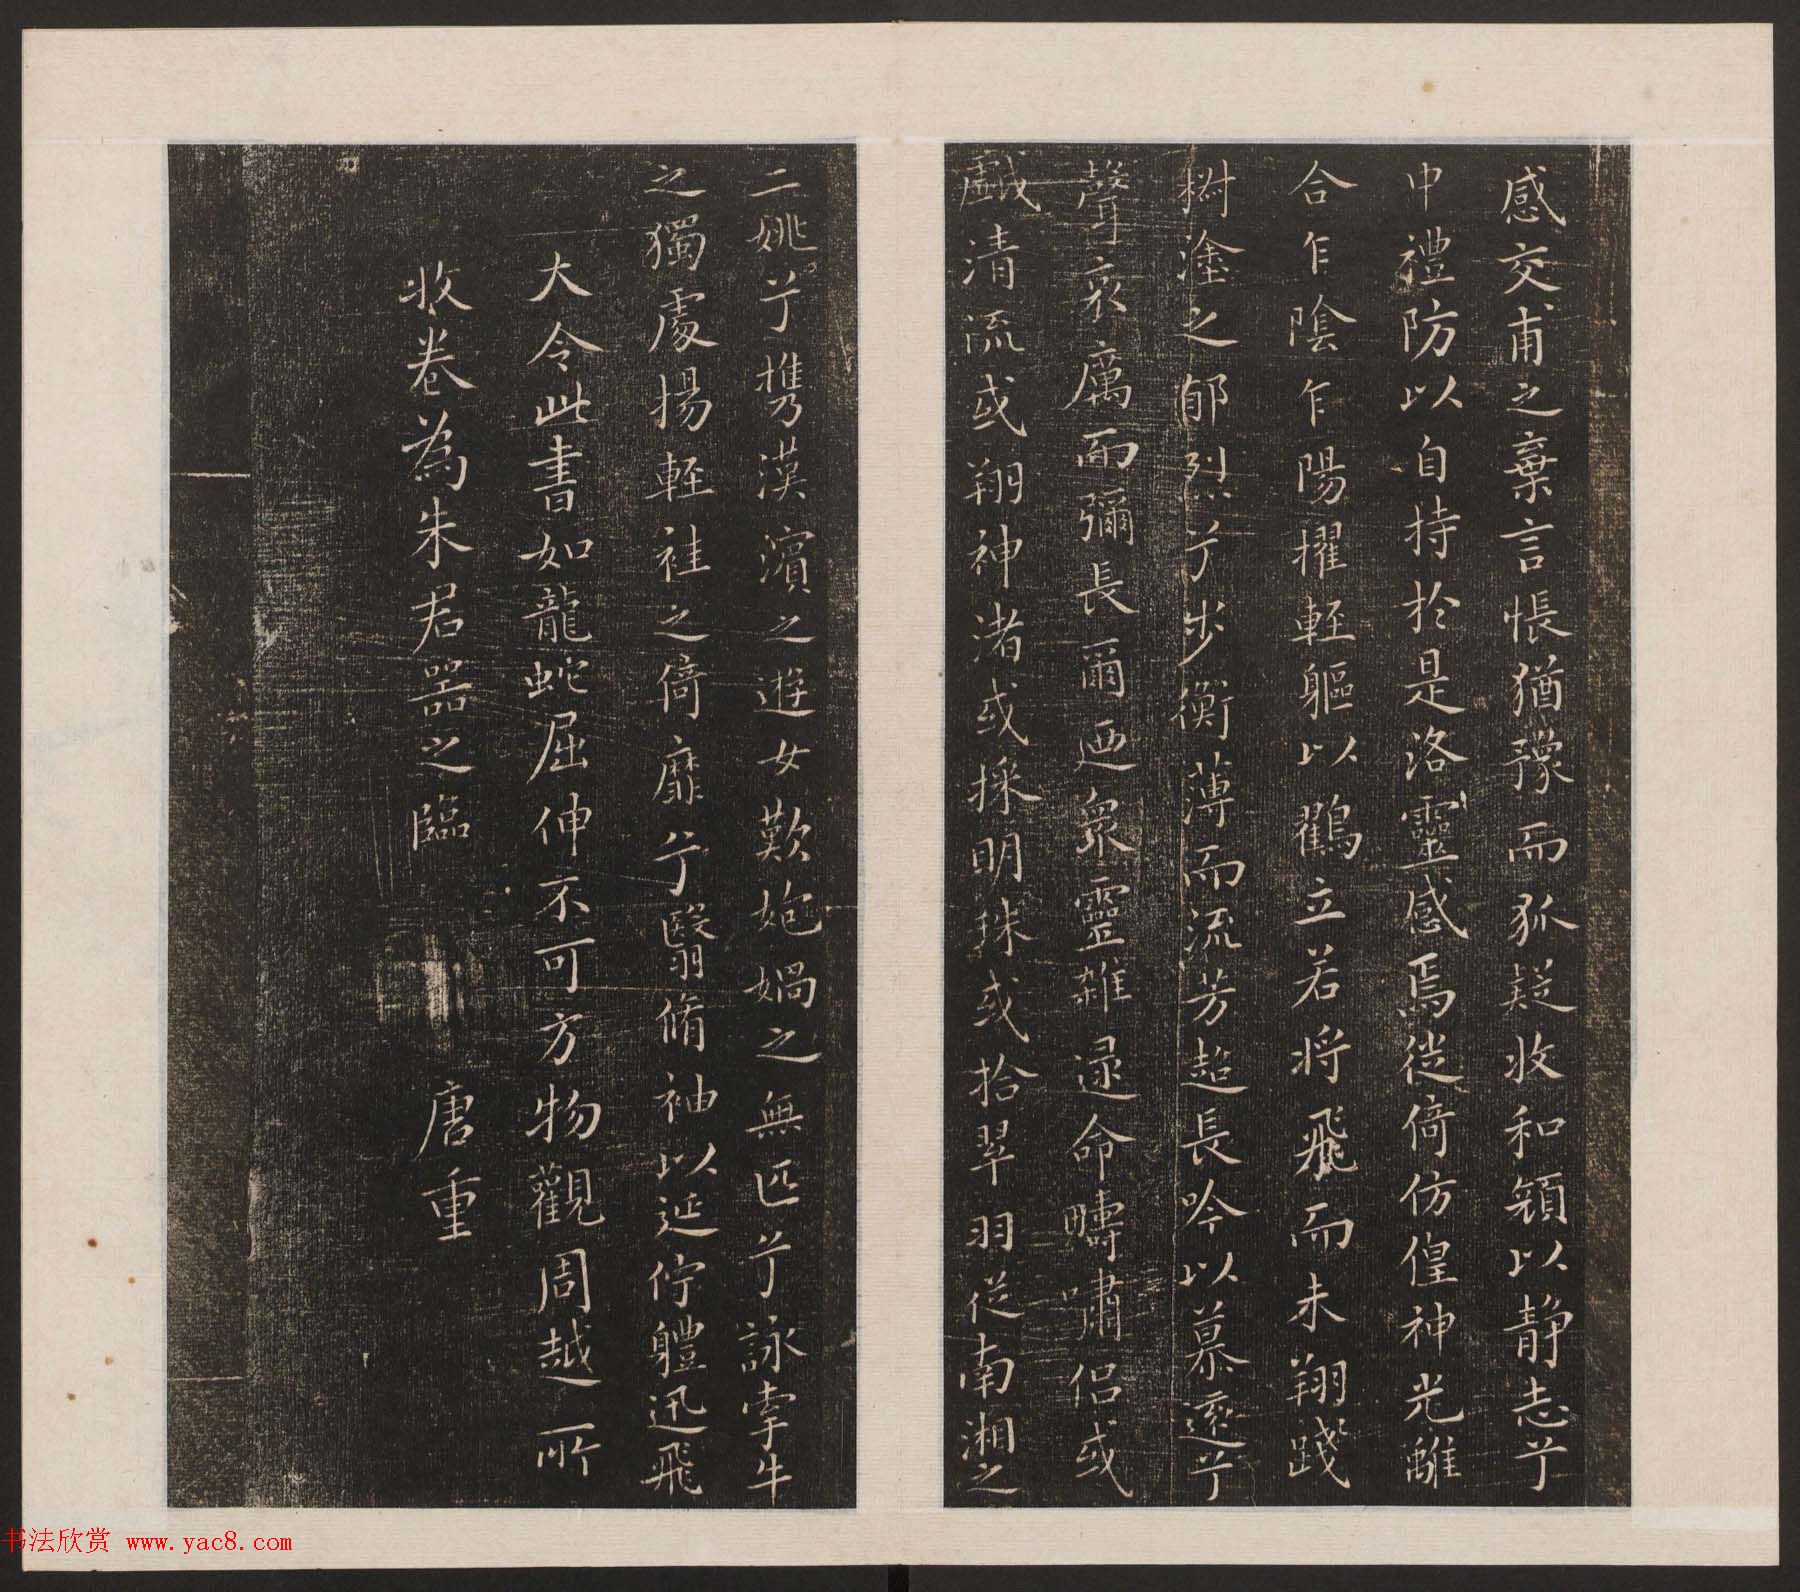 感交甫之棄言悵猶豫而狐疑收和顏以静志兮
申禮防以自持於是洛靈感焉從倚仿偟神光離
合乍陰乍陽擢輕軀以鶴立若將飛而未翔踐
樹塗之郁烈兮步衡薄而流芳超長吟以慕遠兮
聲哀厲而彌長爾迺衆靈雜遝命疇嘯侣或
戲清流或翔神渚或採明珠或拾翠羽從南湘之
二姚兮携漢濱之遊女歎匏媧之無匹兮詠牽牛
之獨處揚輕袿之倚靡兮翳脩袖以延佇體迅飛
大令此書如龍蛇屈伸不可方物觀周越所
收卷為朱君器之臨 唐重
书法欣赏 www.yac8.com